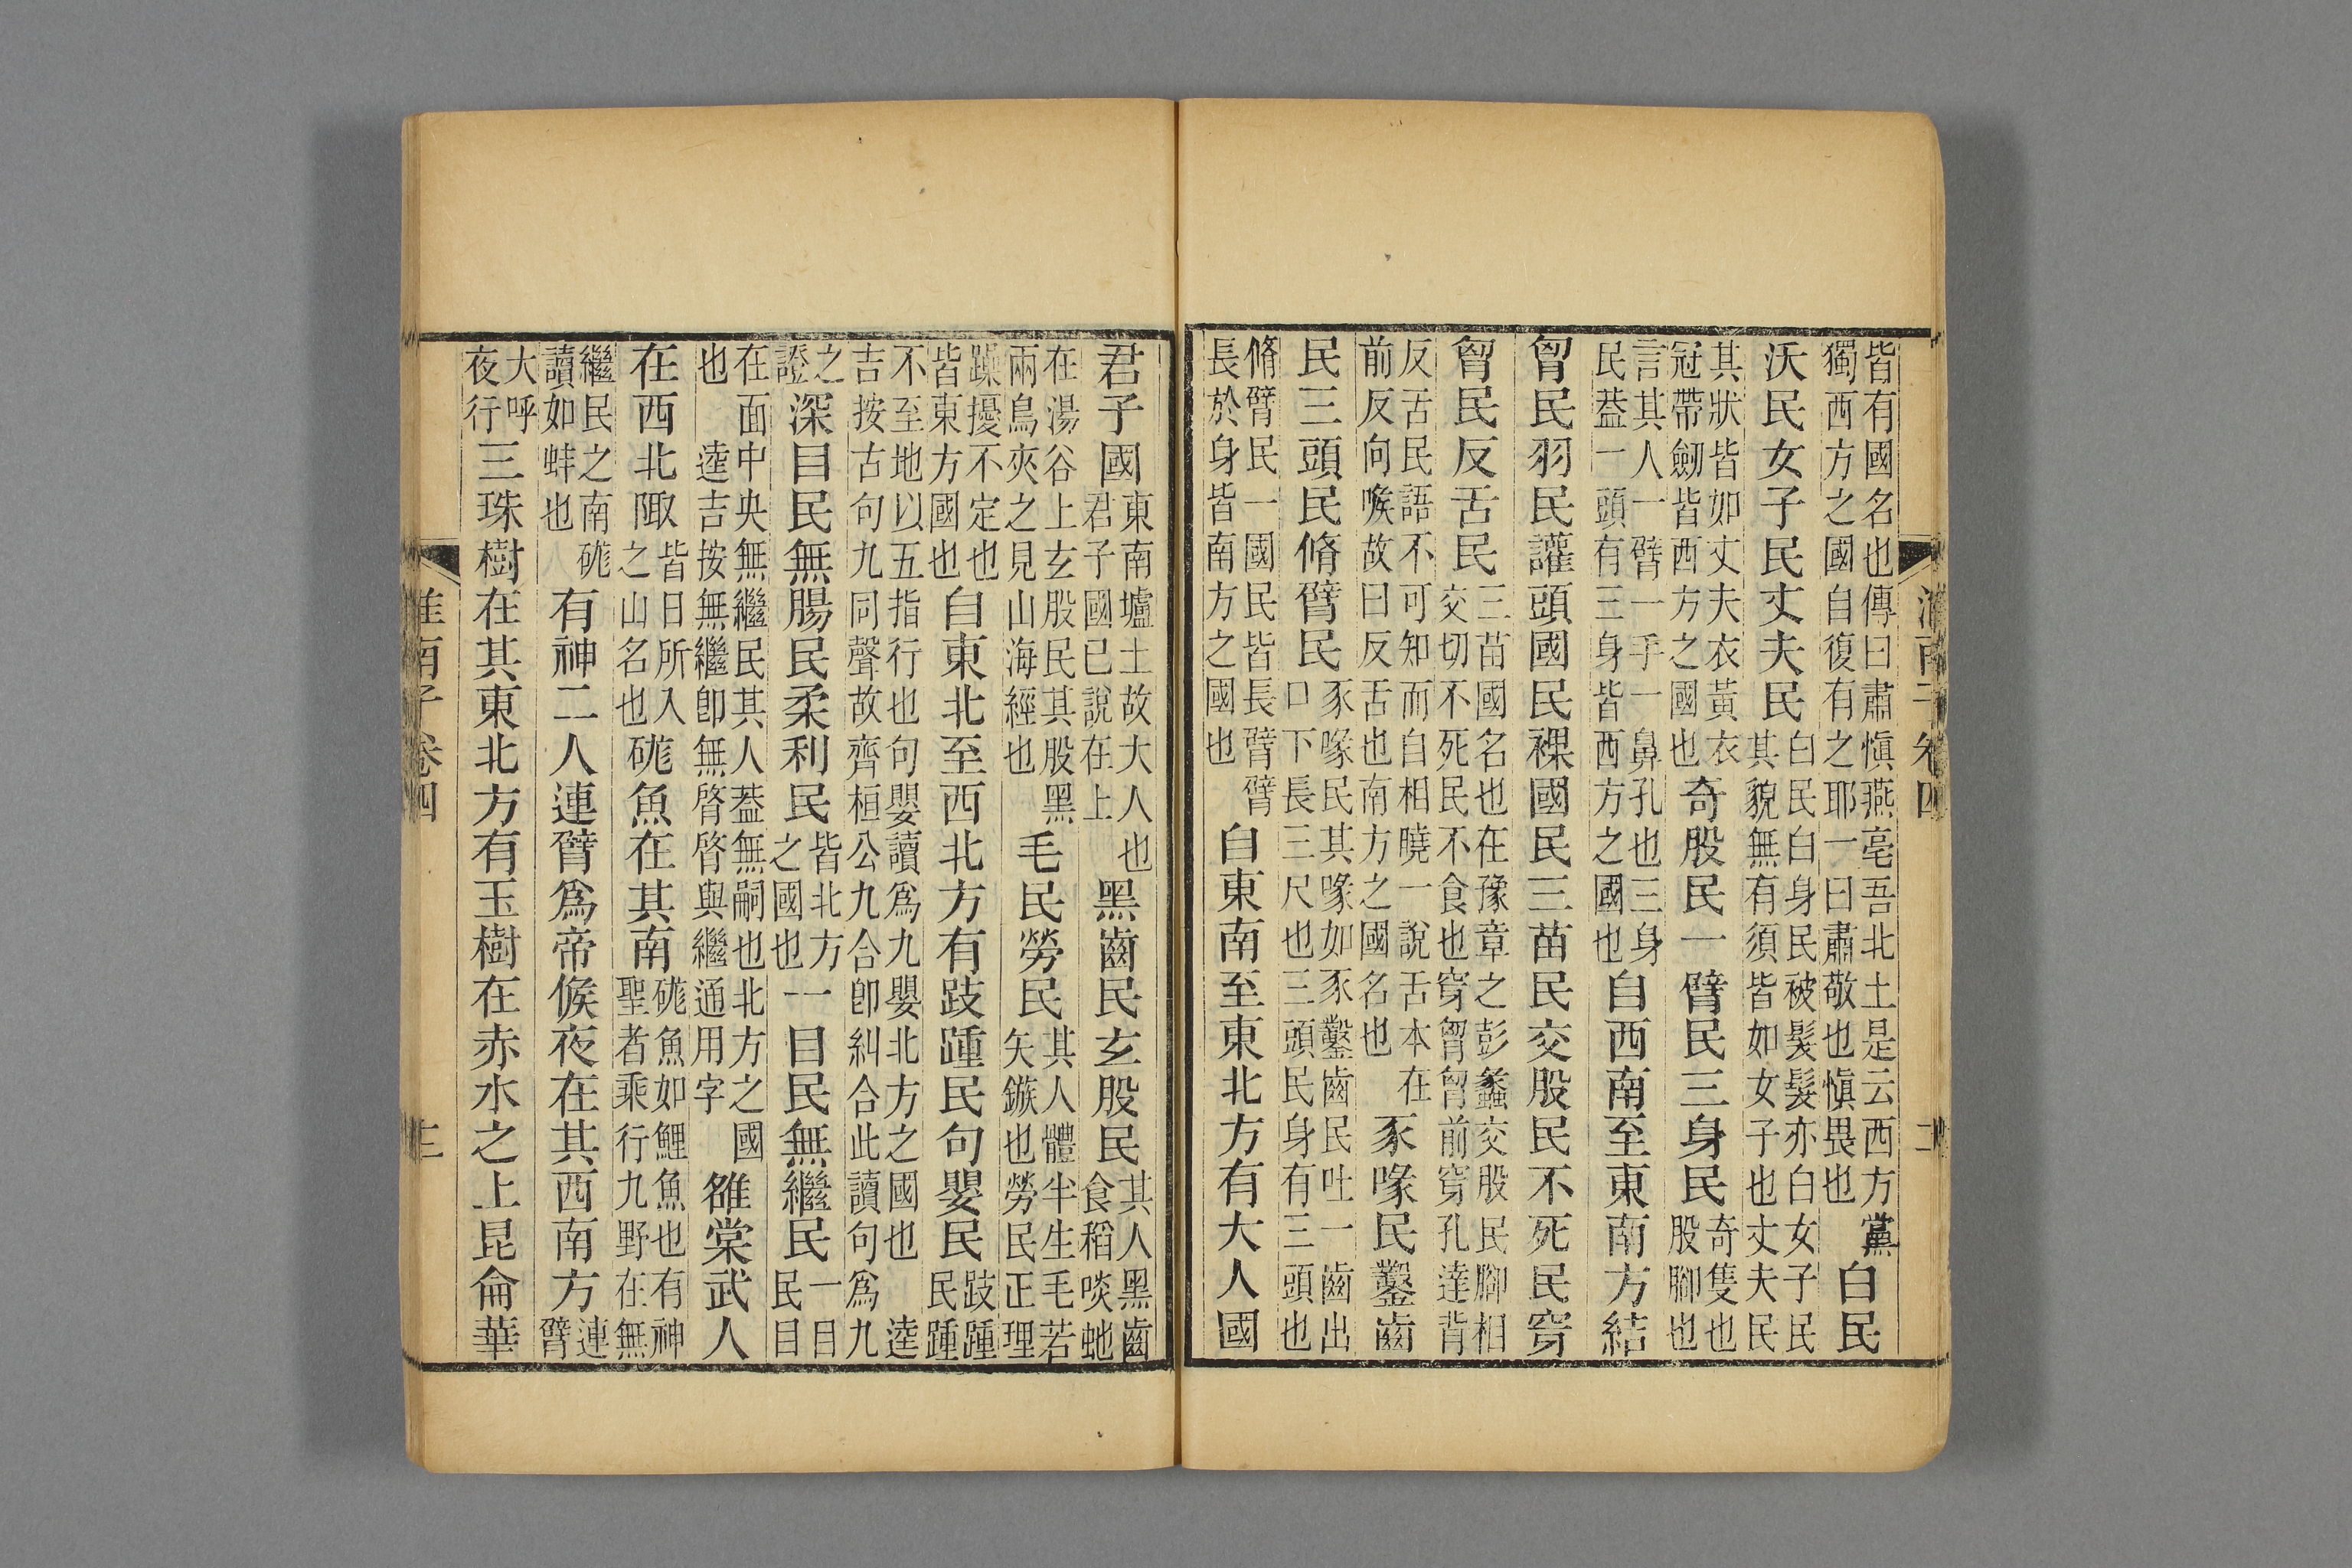 淮南子卷四 二
皆有國名也傳曰肅愼燕亳吾北土是云西方黨獨西方之國自復有之耶一曰肅敬也愼畏也白民
沃民女子民丈夫民白民白身民被髮髮亦白女子民其貌無有須皆如女子也丈夫民
其狀皆如丈夫衣黃衣冠帶劒皆西方之國也奇股民一臂民三身民奇隻也股腳也
言其人一臂一手一鼻孔也三身民葢一頭有三身皆西方之國也自西南至東南方結
胷民羽民讙頭國民裸國民三苗民交股民不死民穿
胷民反舌民三苗國名也在豫章之彭蠡交股民腳相交切不死民不食也穿胷胷前穿孔達背
反舌民語不可知而自相曉一說舌本在前反向喉故曰反舌也南方之國名也豕喙民鑿齒
民三頭民脩臂民豕喙民其喙如豕鑿齒民吐一齒出口下長三尺也三頭民身有三頭也
脩臂民一國民皆長臂臂長於身皆南方之國也自東南至東北方有大人國
君子國東南墟土故大人也君子國已說在上黑齒民玄股民其人黑齒食稻啖虵
在湯谷上玄股民其股黑兩鳥夾之見山海經也毛民勞民其人體半生毛若矢鏃也勞民正理
躁擾不定也皆東方國也自東北至西北方有跂踵民句嬰民跂踵民踵
不至地以五指行也句嬰讀爲九嬰北方之國也 逵吉按古句九同聲故齊桓公九合卽糾合此讀句爲九
之證深目民無腸民柔利民皆北方之國也一目民無繼民一目民目
在面中央無繼民其人葢無嗣也北方之國也 逵吉按無繼卽無䏿䏿與繼通用字雒棠武人
在西北陬皆日所入之山名也硥魚在其南硥魚如鯉魚也有神聖者乘行九野在無
繼民之南硥讀如蚌也有神二人連臂爲帝候夜在其西南方連臂
大呼夜行三珠樹在其東北方有玉樹在赤水之上昆侖華
淮南子卷四 三